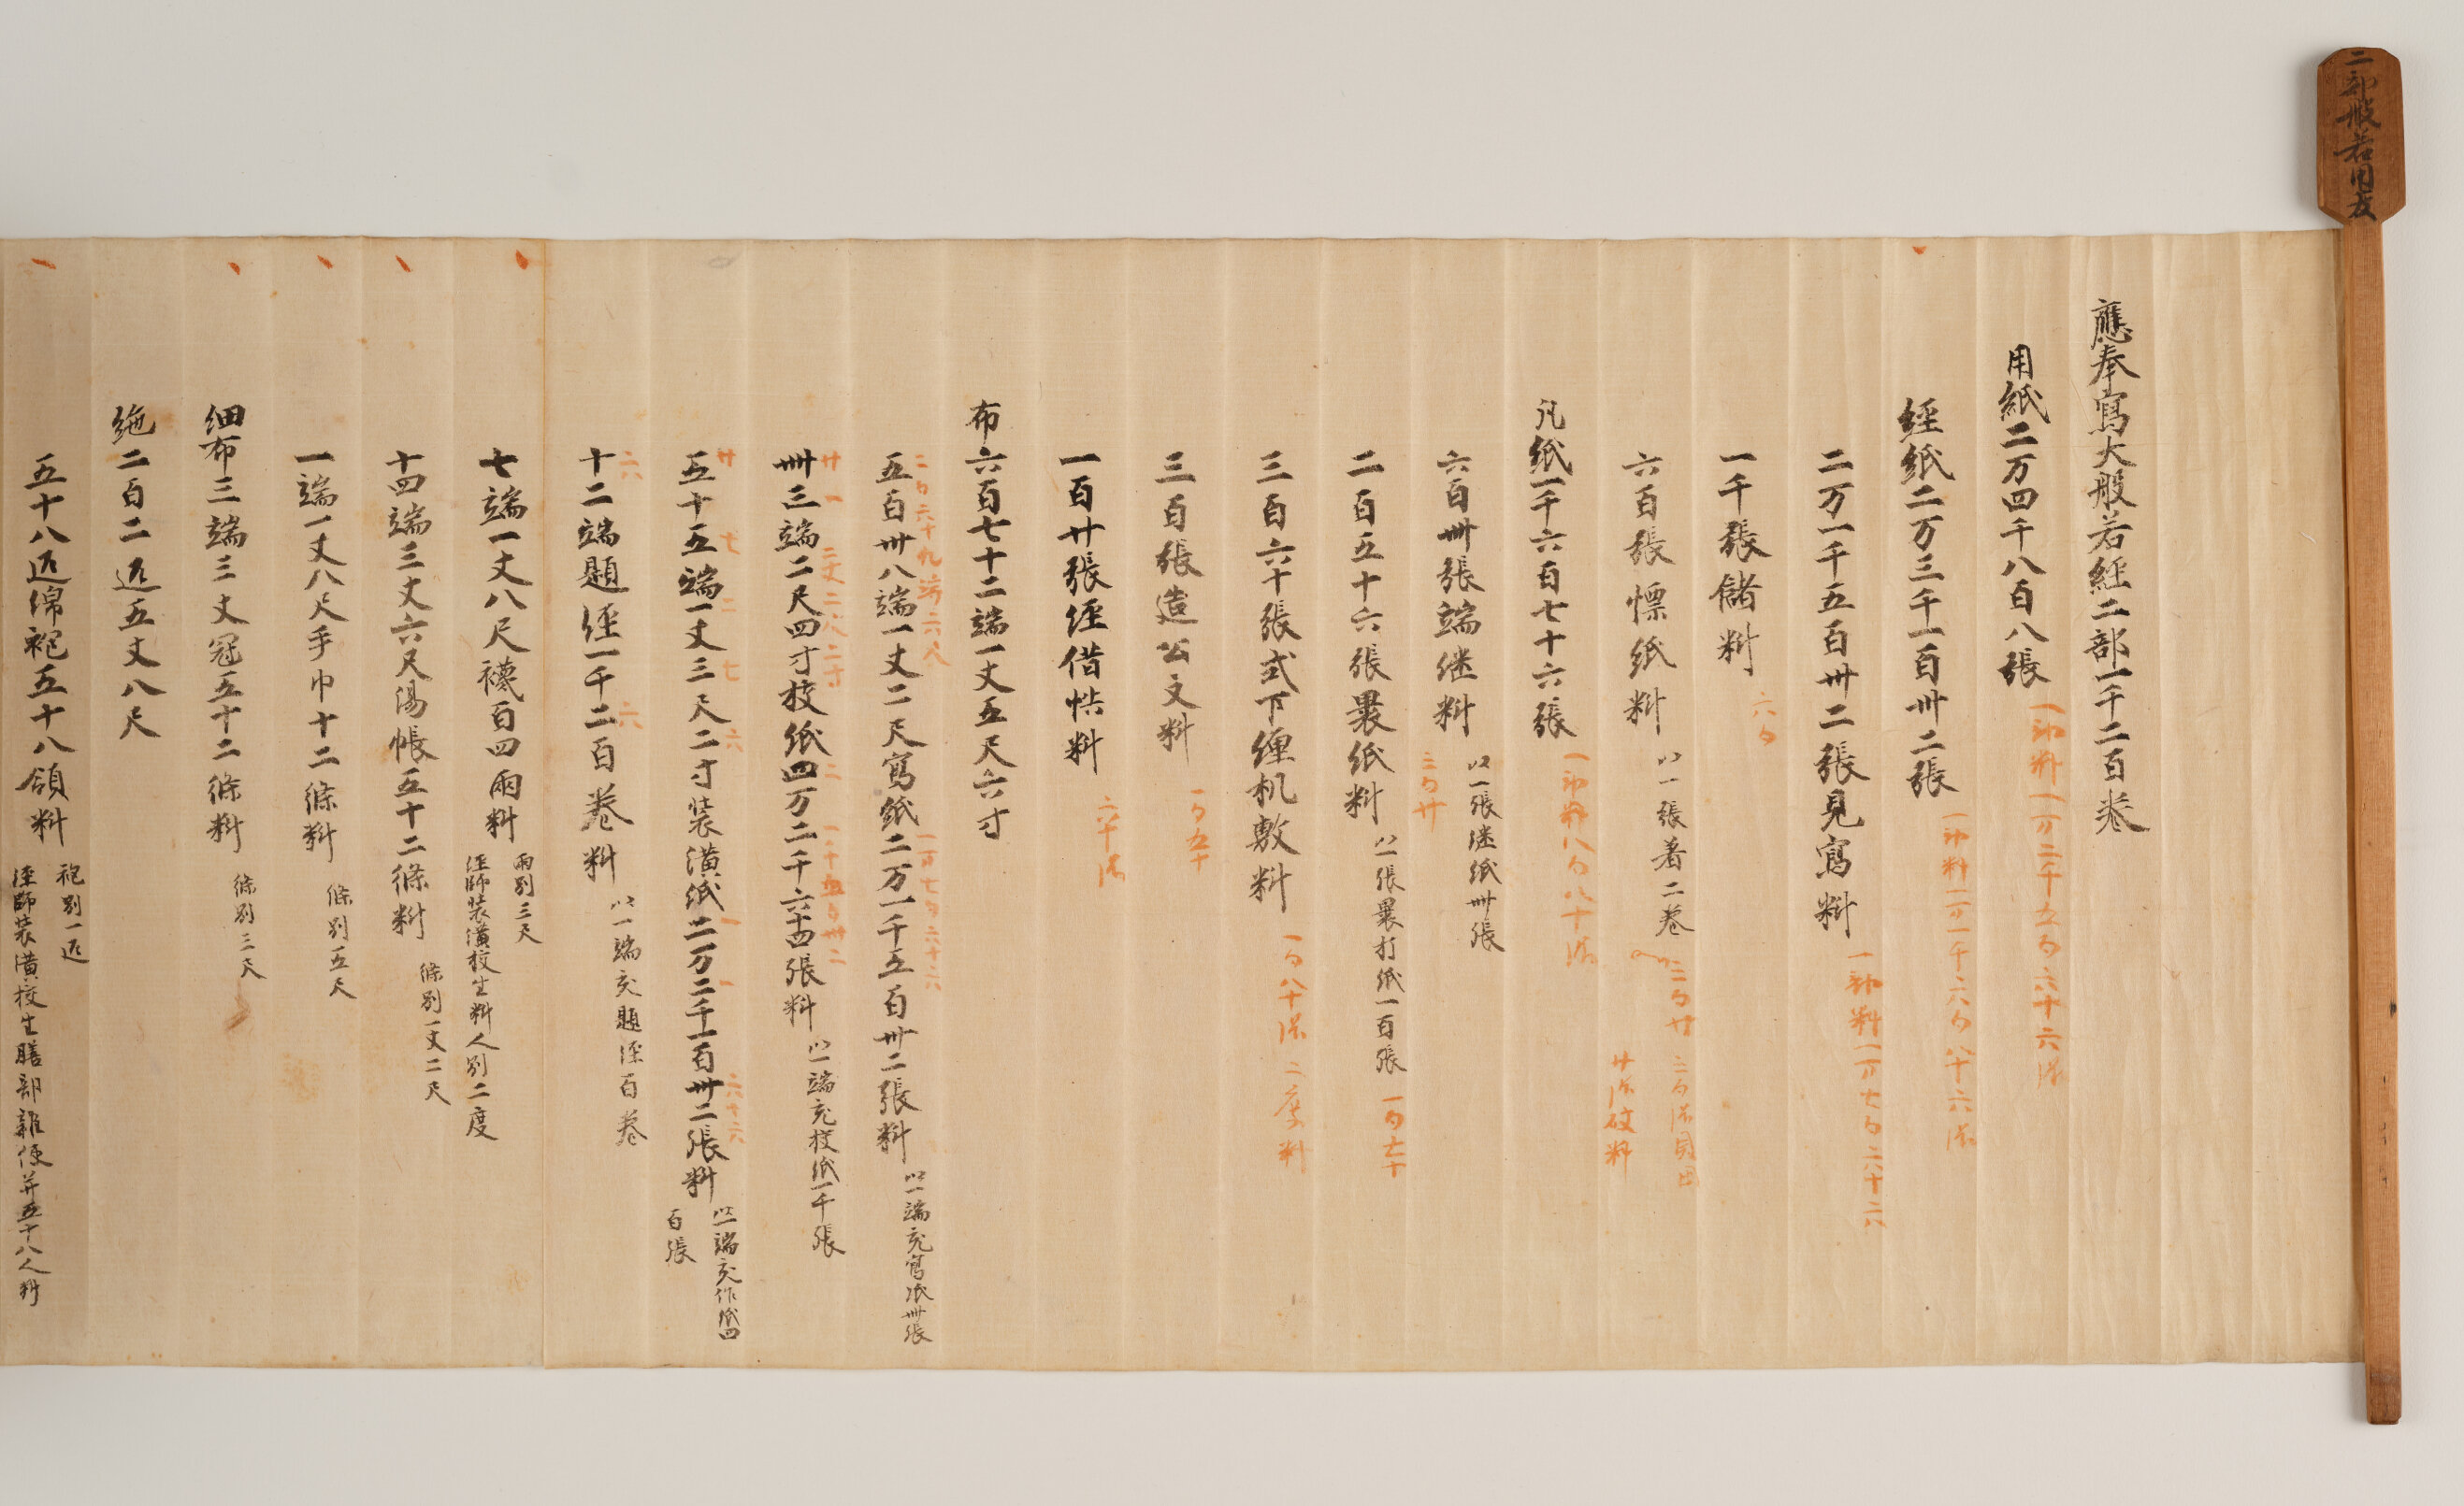 二部般若用度
應奉寫大般若經二部一千二百卷
用紙二万四千八百八張
一部料一万二千五百六十六張
經紙二万三千一百卅二張
一部料一万一千六百八十六張
二万一千五百卅二張見寫料
一部料一万七百六十六
一千張儲料
六百
六百張慓紙料
以一張著二卷
三百廿
三百張
廿張破料
凡紙一千六百七十六張
一部料八百八十張
六百卌張端継料
以一張継紙卌張
三百廿
二百五十六張裹紙料
以一張裹打紙一百張
一百七十
三百六十張式下纏机敷料
一百八十張 二度料
三百張造公文料
一百五十
一百廿張經借帙料
六十張
布六百七十二端一丈五尺六寸
五百卅八端一丈二尺寫紙二万一千五百卅二張料
二百六十九端六尺
一万七百六十六
以一端充寫紙卌張
卌三端二尺四寸校紙四万二千六十四張料
廿一 二丈二尺二寸 二 一千五百卅二
以一端充校紙一千張
五十五端一丈三尺二寸装潢紙二万二千一百卅二張料
廿 七 二 七 六 一 一 六十六
以一端充作紙四
百張
十二端題經一千二百卷料
六 六
以一端充題經百卷
七端一丈八尺襪百四兩料
兩別三尺
經師装潢校生料人別二度
十四端三丈六尺湯帳五十二條料
條別一丈二尺
一端一丈八尺手巾十二條料
條別五尺
細布三端三丈冠五十二條料
條別三尺
絁二百二疋五丈八尺
五十八疋綿袍五十八領料
袍別一疋
經師装潢校生膳部雜使并五十八人料